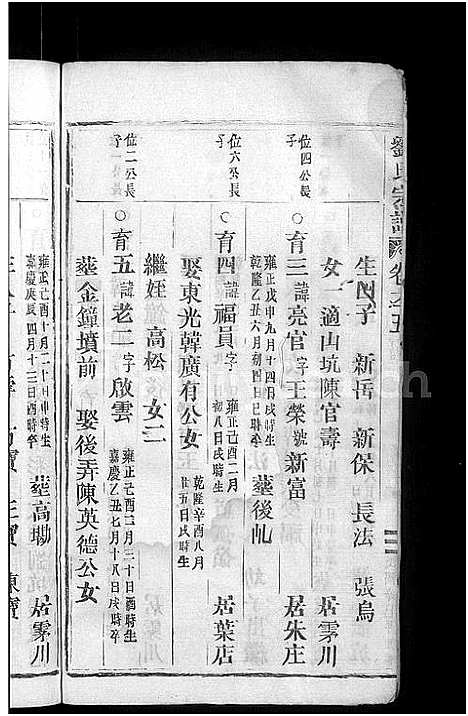 劉氏宗譜 卷之五
生四子 新岳 新保 長法 張烏
女一適山坑陳官壽 居雾川
位四公長子
○育三 諱亮官 字王榮 號新富 居朱庄
雍正戊申九月十四日戌時生
乾隆乙丑六月初四日巳時卒
葬後乢
位六公長子
○育四 諱福員 字
雍正己酉二月
初八日戌時生
居葉店
娶東光韓廣有公女
乾隆辛酉八月
廿五日戌時生
繼姪高松 女二
位二公長子
○育五 諱老二 字啟雲
雍正己酉二月三十日酉時生
嘉慶乙丑七月十八日戌時卒
葬金鐘墳前 娶後弄陳英德公女
雍正己酉十月二十日申時生
嘉慶庚辰四月十二日酉時卒
葬高塝 居雾川